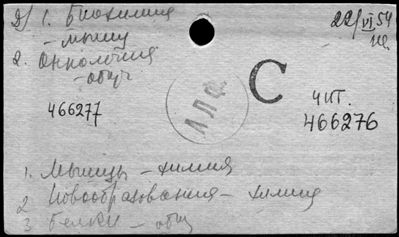 2) 1. Биохимия
22/VI 54
- мышц
2. Онкология
- общ
466277
АЛФ
С
чит.
466276
1. Мышцы - химия
2 Новообразования - химия
3 Белки - общ